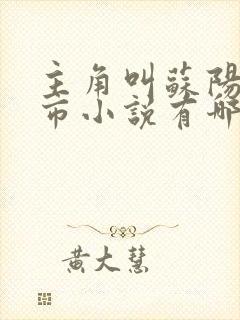 主角叫蘇陽
市小說有哪
黃大慧